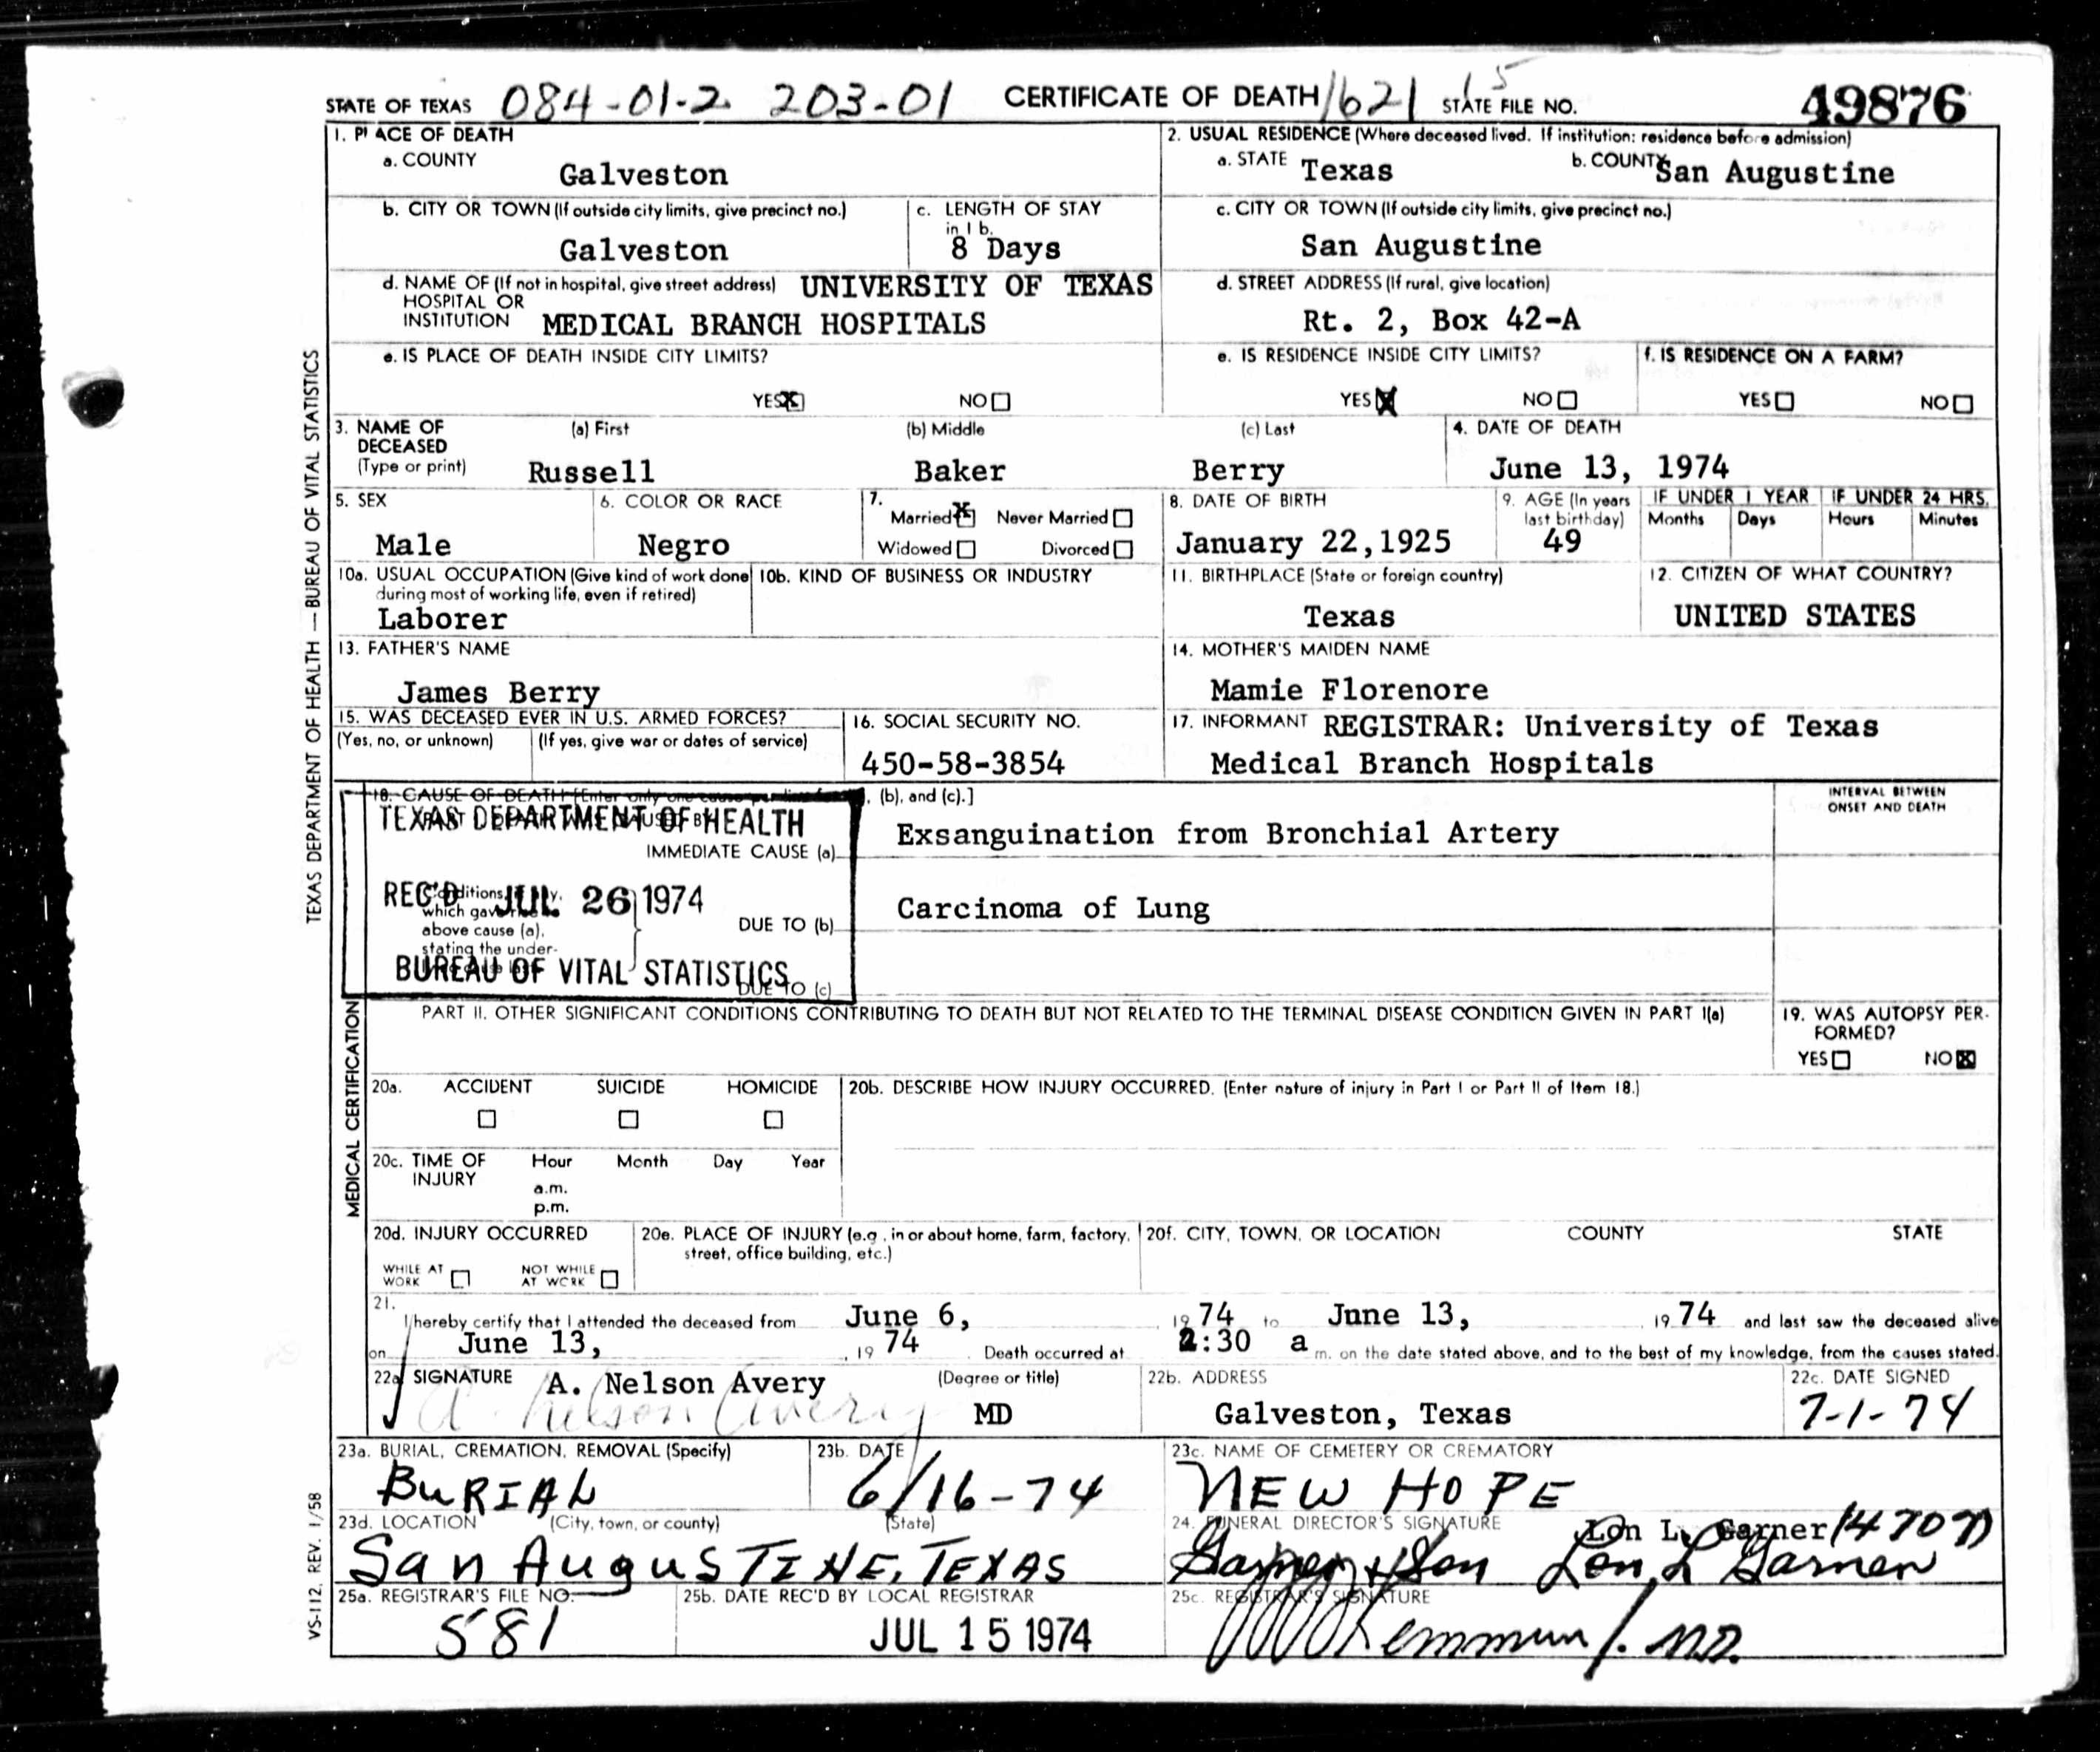 STATE OF TEXAS 084-01-2 203-01 CERTIFICATE OF DEATH 1621 15 STATE FILE NO. 49876
1. PLACE OF DEATH
a. COUNTY
Galveston
2. USUAL RESIDENCE (Where deceased lived. If institution: residence before admission)
a. STATE Texas b. COUNTY San Augustine
b. CITY OR TOWN (If outside city limits, give precinct no.)
Galveston
c. LENGTH OF STAY
in 1 b.
8 Days
c. CITY OR TOWN (If outside city limits, give precinct no.)
San Augustine
d. NAME OF (If not in hospital, give street address) UNIVERSITY OF TEXAS
HOSPITAL OR
INSTITUTION MEDICAL BRANCH HOSPITALS
d. STREET ADDRESS (If rural, give location)
Rt. 2, Box 42-A
e. IS PLACE OF DEATH INSIDE CITY LIMITS?
YES X NO
e. IS RESIDENCE INSIDE CITY LIMITS?
YES X NO
f. IS RESIDENCE ON A FARM?
YES NO
3. NAME OF
DECEASED
(Type or print)
(a) First (b) Middle (c) Last
Russell Baker Berry
4. DATE OF DEATH
June 13, 1974
5. SEX
Male
6. COLOR OR RACE
Negro
7.
Married X Never Married
Widowed Divorced
8. DATE OF BIRTH
January 22,1925
9. AGE (In years
last birthday)
49
IF UNDER 1 YEAR
Months Days
IF UNDER 24 HRS.
Hours Minutes
10a. USUAL OCCUPATION (Give kind of work done
during most of working life, even if retired)
Laborer
10b. KIND OF BUSINESS OR INDUSTRY
11. BIRTHPLACE (State or foreign country)
Texas
12. CITIZEN OF WHAT COUNTRY?
UNITED STATES
13. FATHER'S NAME
James Berry
14. MOTHER'S MAIDEN NAME
Mamie Florenore
15. WAS DECEASED EVER IN U.S. ARMED FORCES?
(Yes, no, or unknown) (If yes, give war or dates of service)
16. SOCIAL SECURITY NO.
450-58-3854
17. INFORMANT REGISTRAR: University of Texas
Medical Branch Hospitals
18. CAUSE OF DEATH [Enter only one cause per line for , (b), and (c).]
TEXAS DEPARTMENT OF HEALTH
IMMEDIATE CAUSE (a) Exsanguination from Bronchial Artery
REC'D JUL 26 1974
Conditions,
which gave
above cause (a),
stating the under-
DUE TO (b) Carcinoma of Lung
BUREAU OF VITAL STATISTICS
DUE TO (c)
INTERVAL BETWEEN
ONSET AND DEATH
PART II. OTHER SIGNIFICANT CONDITIONS CONTRIBUTING TO DEATH BUT NOT RELATED TO THE TERMINAL DISEASE CONDITION GIVEN IN PART I(a)
19. WAS AUTOPSY PER-
FORMED?
YES NO X
20a. ACCIDENT SUICIDE HOMICIDE
20b. DESCRIBE HOW INJURY OCCURRED. (Enter nature of injury in Part I or Part II of Item 18.)
20c. TIME OF
INJURY
Hour Month Day Year
a.m.
p.m.
20d. INJURY OCCURRED
WHILE AT
WORK
NOT WHILE
AT WORK
20e. PLACE OF INJURY (e.g., in or about home, farm, factory,
street, office building, etc.)
20f. CITY, TOWN, OR LOCATION COUNTY STATE
21.
I hereby certify that I attended the deceased from June 6, 19 74 to June 13, 19 74 and last saw the deceased alive
on June 13, 19 74 Death occurred at 2:30 a m. on the date stated above, and to the best of my knowledge, from the causes stated.
22a. SIGNATURE A. Nelson Avery (Degree or title)
A. Nelson Avery MD
22b. ADDRESS
Galveston, Texas
22c. DATE SIGNED
7-1-74
23a. BURIAL, CREMATION, REMOVAL (Specify)
BURIAL
23b. DATE
6/16-74
23c. NAME OF CEMETERY OR CREMATORY
NEW HOPE
23d. LOCATION (City, town, or county) (State)
San AugusTINE, TEXAS
24. FUNERAL DIRECTOR'S SIGNATURE Lon L. Garner 14707
Garner & Son Lon L Garner
25a. REGISTRAR'S FILE NO.
581
25b. DATE REC'D BY LOCAL REGISTRAR
JUL 15 1974
25c. REGISTRAR'S SIGNATURE
M.D.
TEXAS DEPARTMENT OF HEALTH — BUREAU OF VITAL STATISTICS
MEDICAL CERTIFICATION
VS-112, REV. 1/58